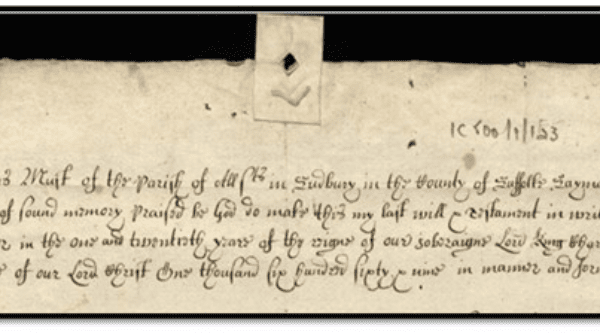 IC 500/1/153
Must of the Parish of All Sts in Sudbury in the County of Suffolke
of sound memory praised be God do make this my last will & Testament in
in the one and twentieth yeare of the reigne of our soberaigne Lord King
of our Lord Christ One thousand six hundred sixty & nine in manner and